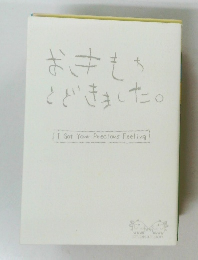 おきもち
とどきました。
I Got Your Precious Feeling